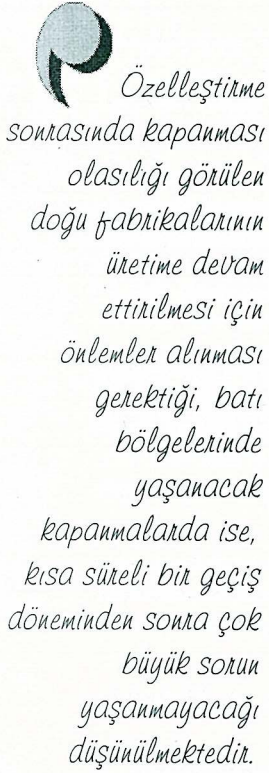 Özelleştirme
sonrasında kapanması
olasılığı görülen
doğu fabrikalarının
üretime devam
ettirilmesi için
önlemler alınması
gerektiği, batı
bölgelerinde
yaşanacak
kapanmalarda ise,
kısa süreli bir geçiş
döneminden sonra çok
büyük sorun
yaşanmayacağı
düşünülmektedir.